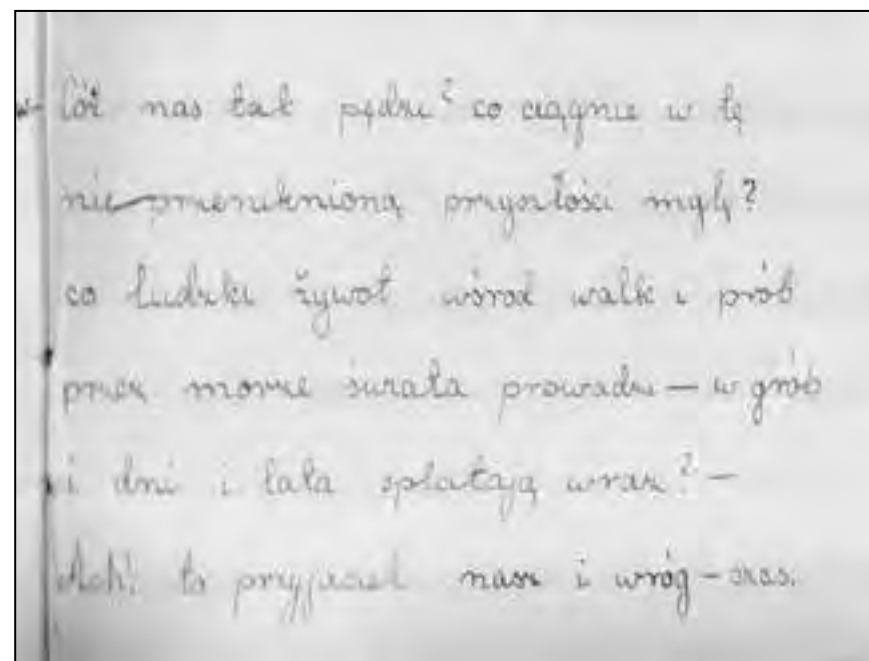 Cóż nas tak pędzi? co ciągnie w tę
nieprzeniknioną przyszłości mgłę?
co ludzki żywot wśród walk i prób
przez morze świata prowadzi — w grób
i dni i lata splatają wraz? —
Ach! to przyjaciel nasz i wróg — czas.